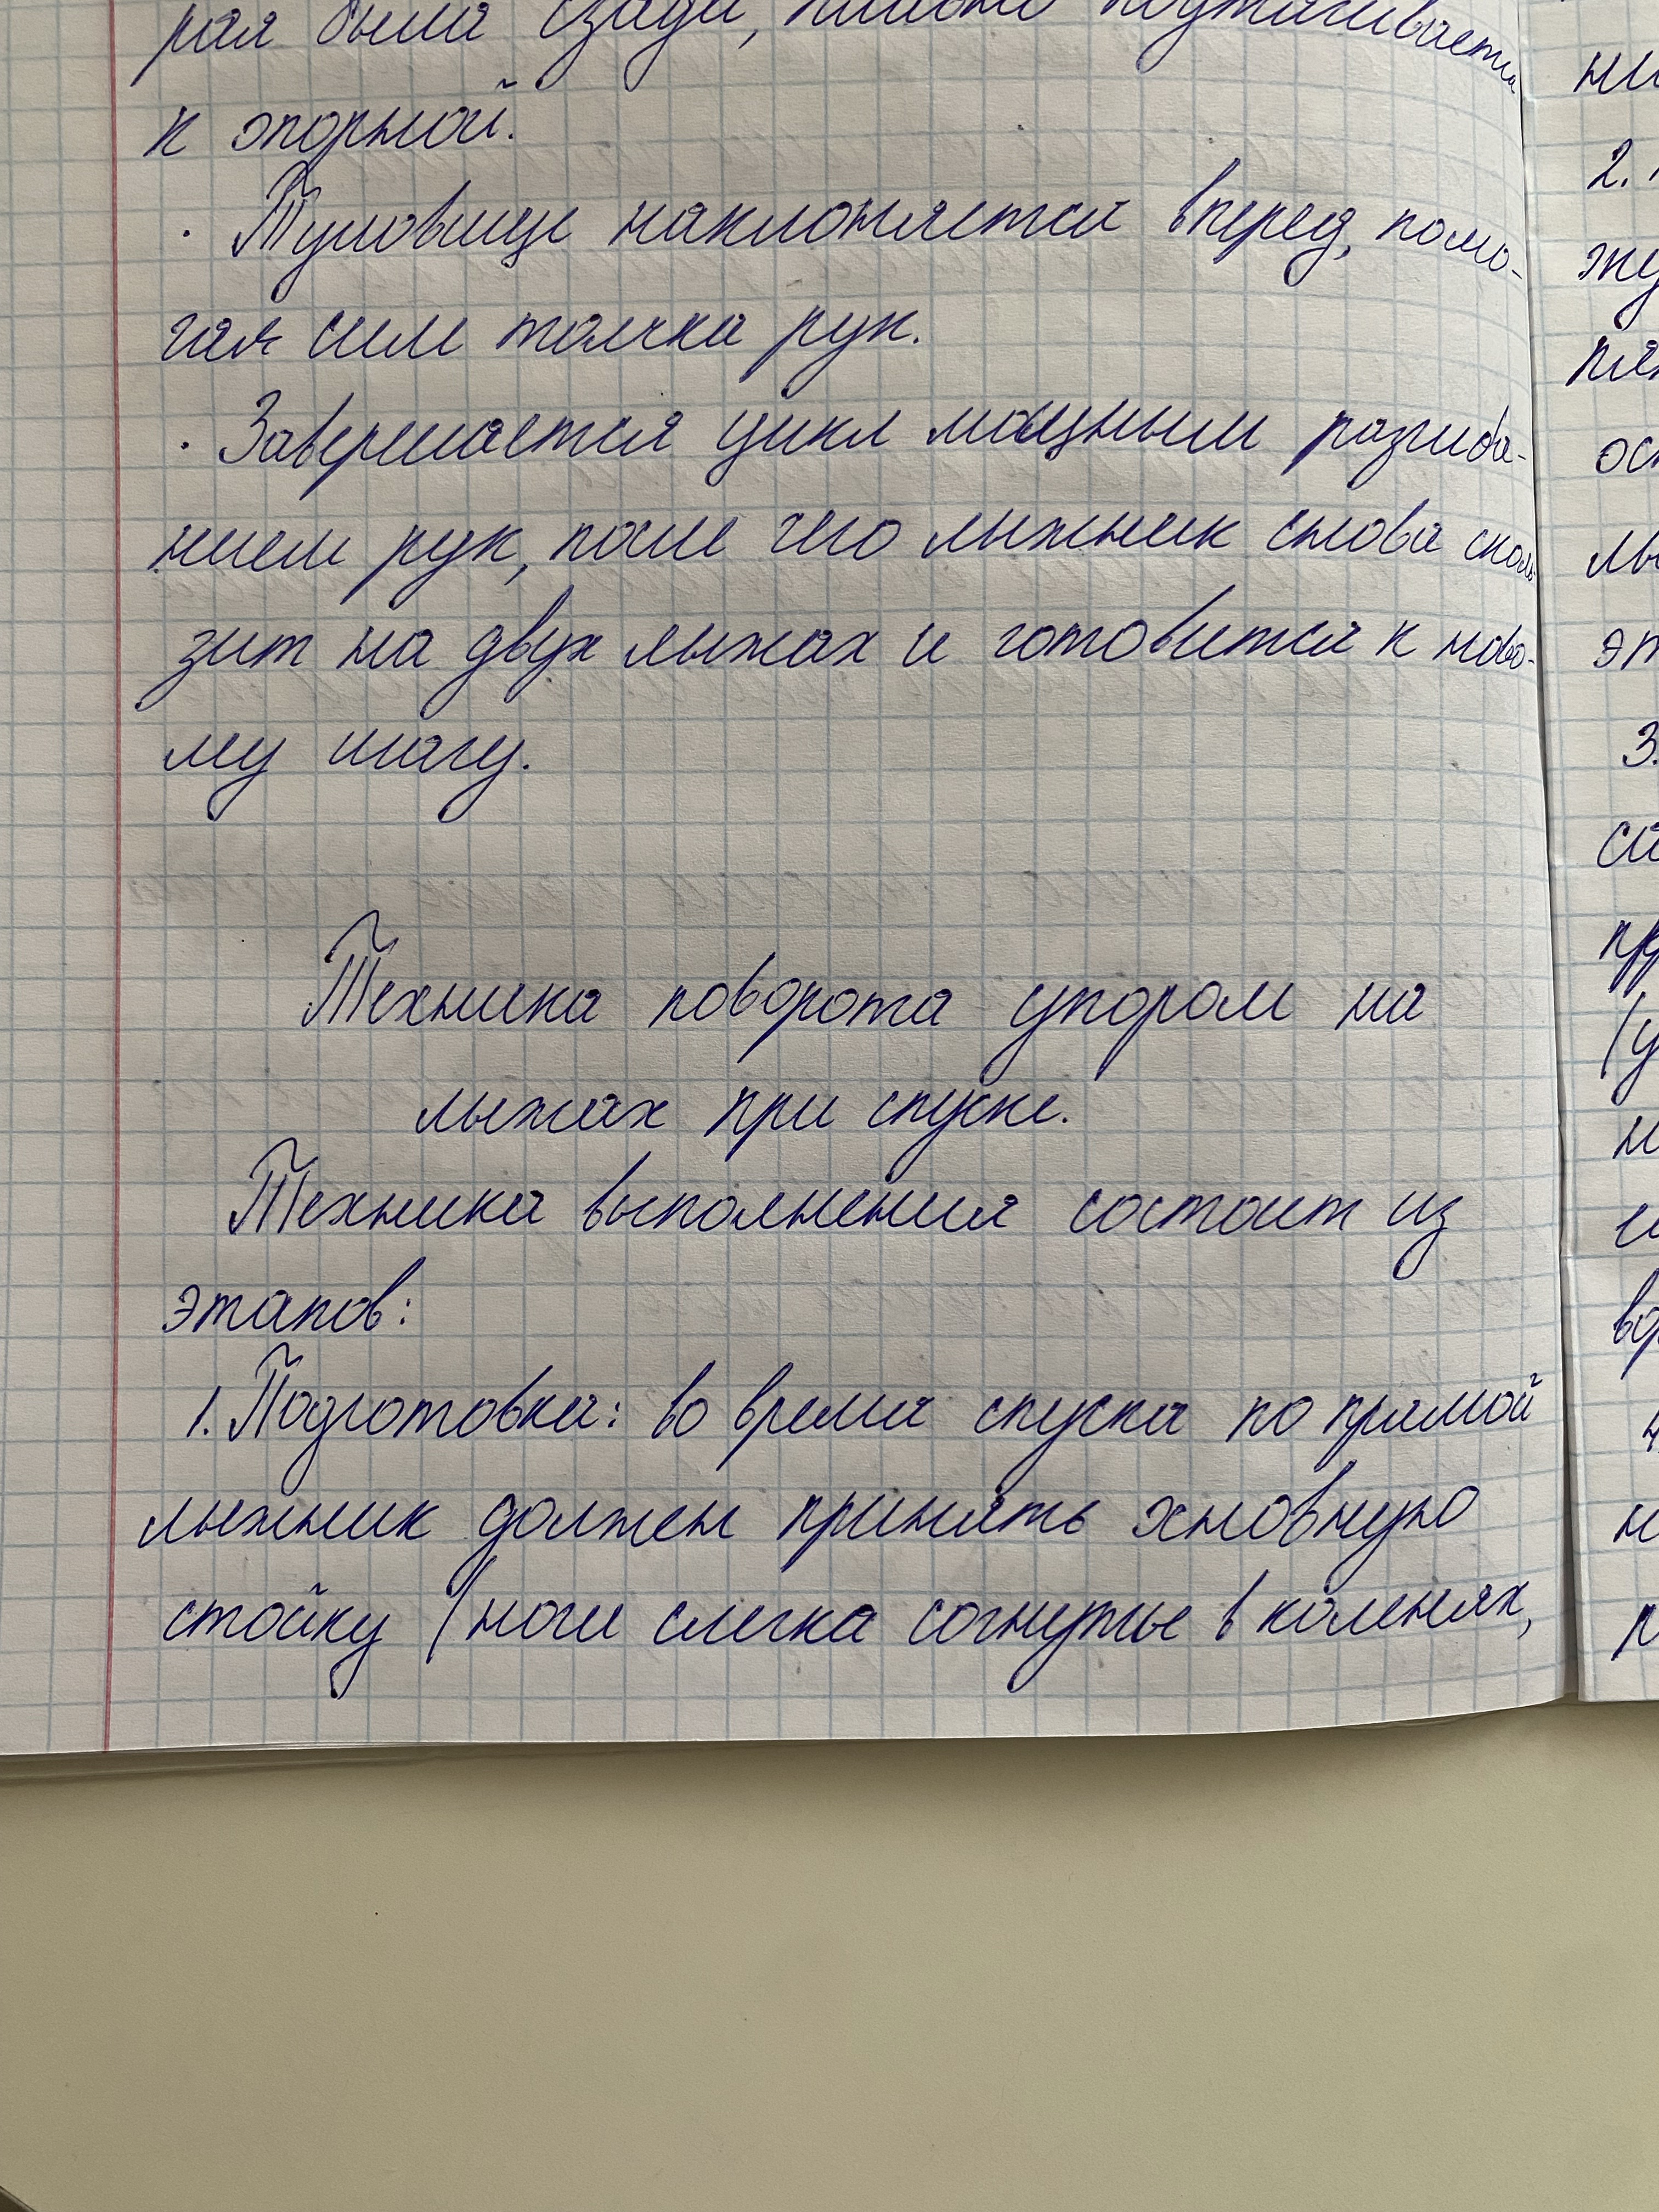 рая была сзади, плавно подтягивается
к опорной.
· Туловище наклоняется вперед, помо-
гая сил толчка рук.
· Завершается цикл мощным разгиба-
нием рук, после чего лыжник снова сколь-
зит на двух лыжах и готовится к ново-
му шагу.
Техника поворота упором на
лыжах при спуске.
Техника выполнения состоит из
этапов:
1. Подготовка: во время спуска по прямой
лыжник должен принять хновную
стойку (ноги слегка согнутые в коленях,
2.
3.